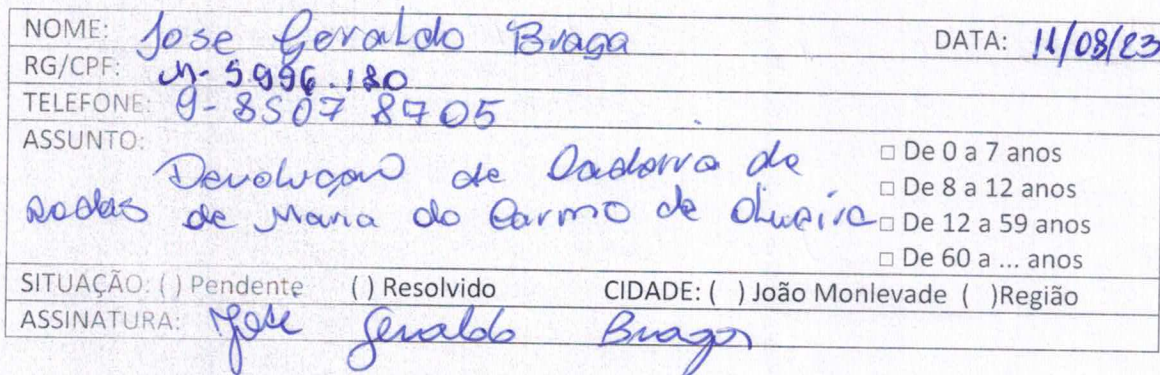 NOME: Jose Geraldo Braga DATA: 11/08/23
RG/CPF: M-5.996.180
TELEFONE: 9-8507 8705
ASSUNTO:
Devoluçaõ de Cadeira de
rodas de Maria do Carmo de Oliveira
□ De 0 a 7 anos
□ De 8 a 12 anos
□ De 12 a 59 anos
□ De 60 a ... anos
SITUAÇÃO: ( ) Pendente ( ) Resolvido CIDADE: ( ) João Monlevade ( )Região
ASSINATURA: José Geraldo Braga